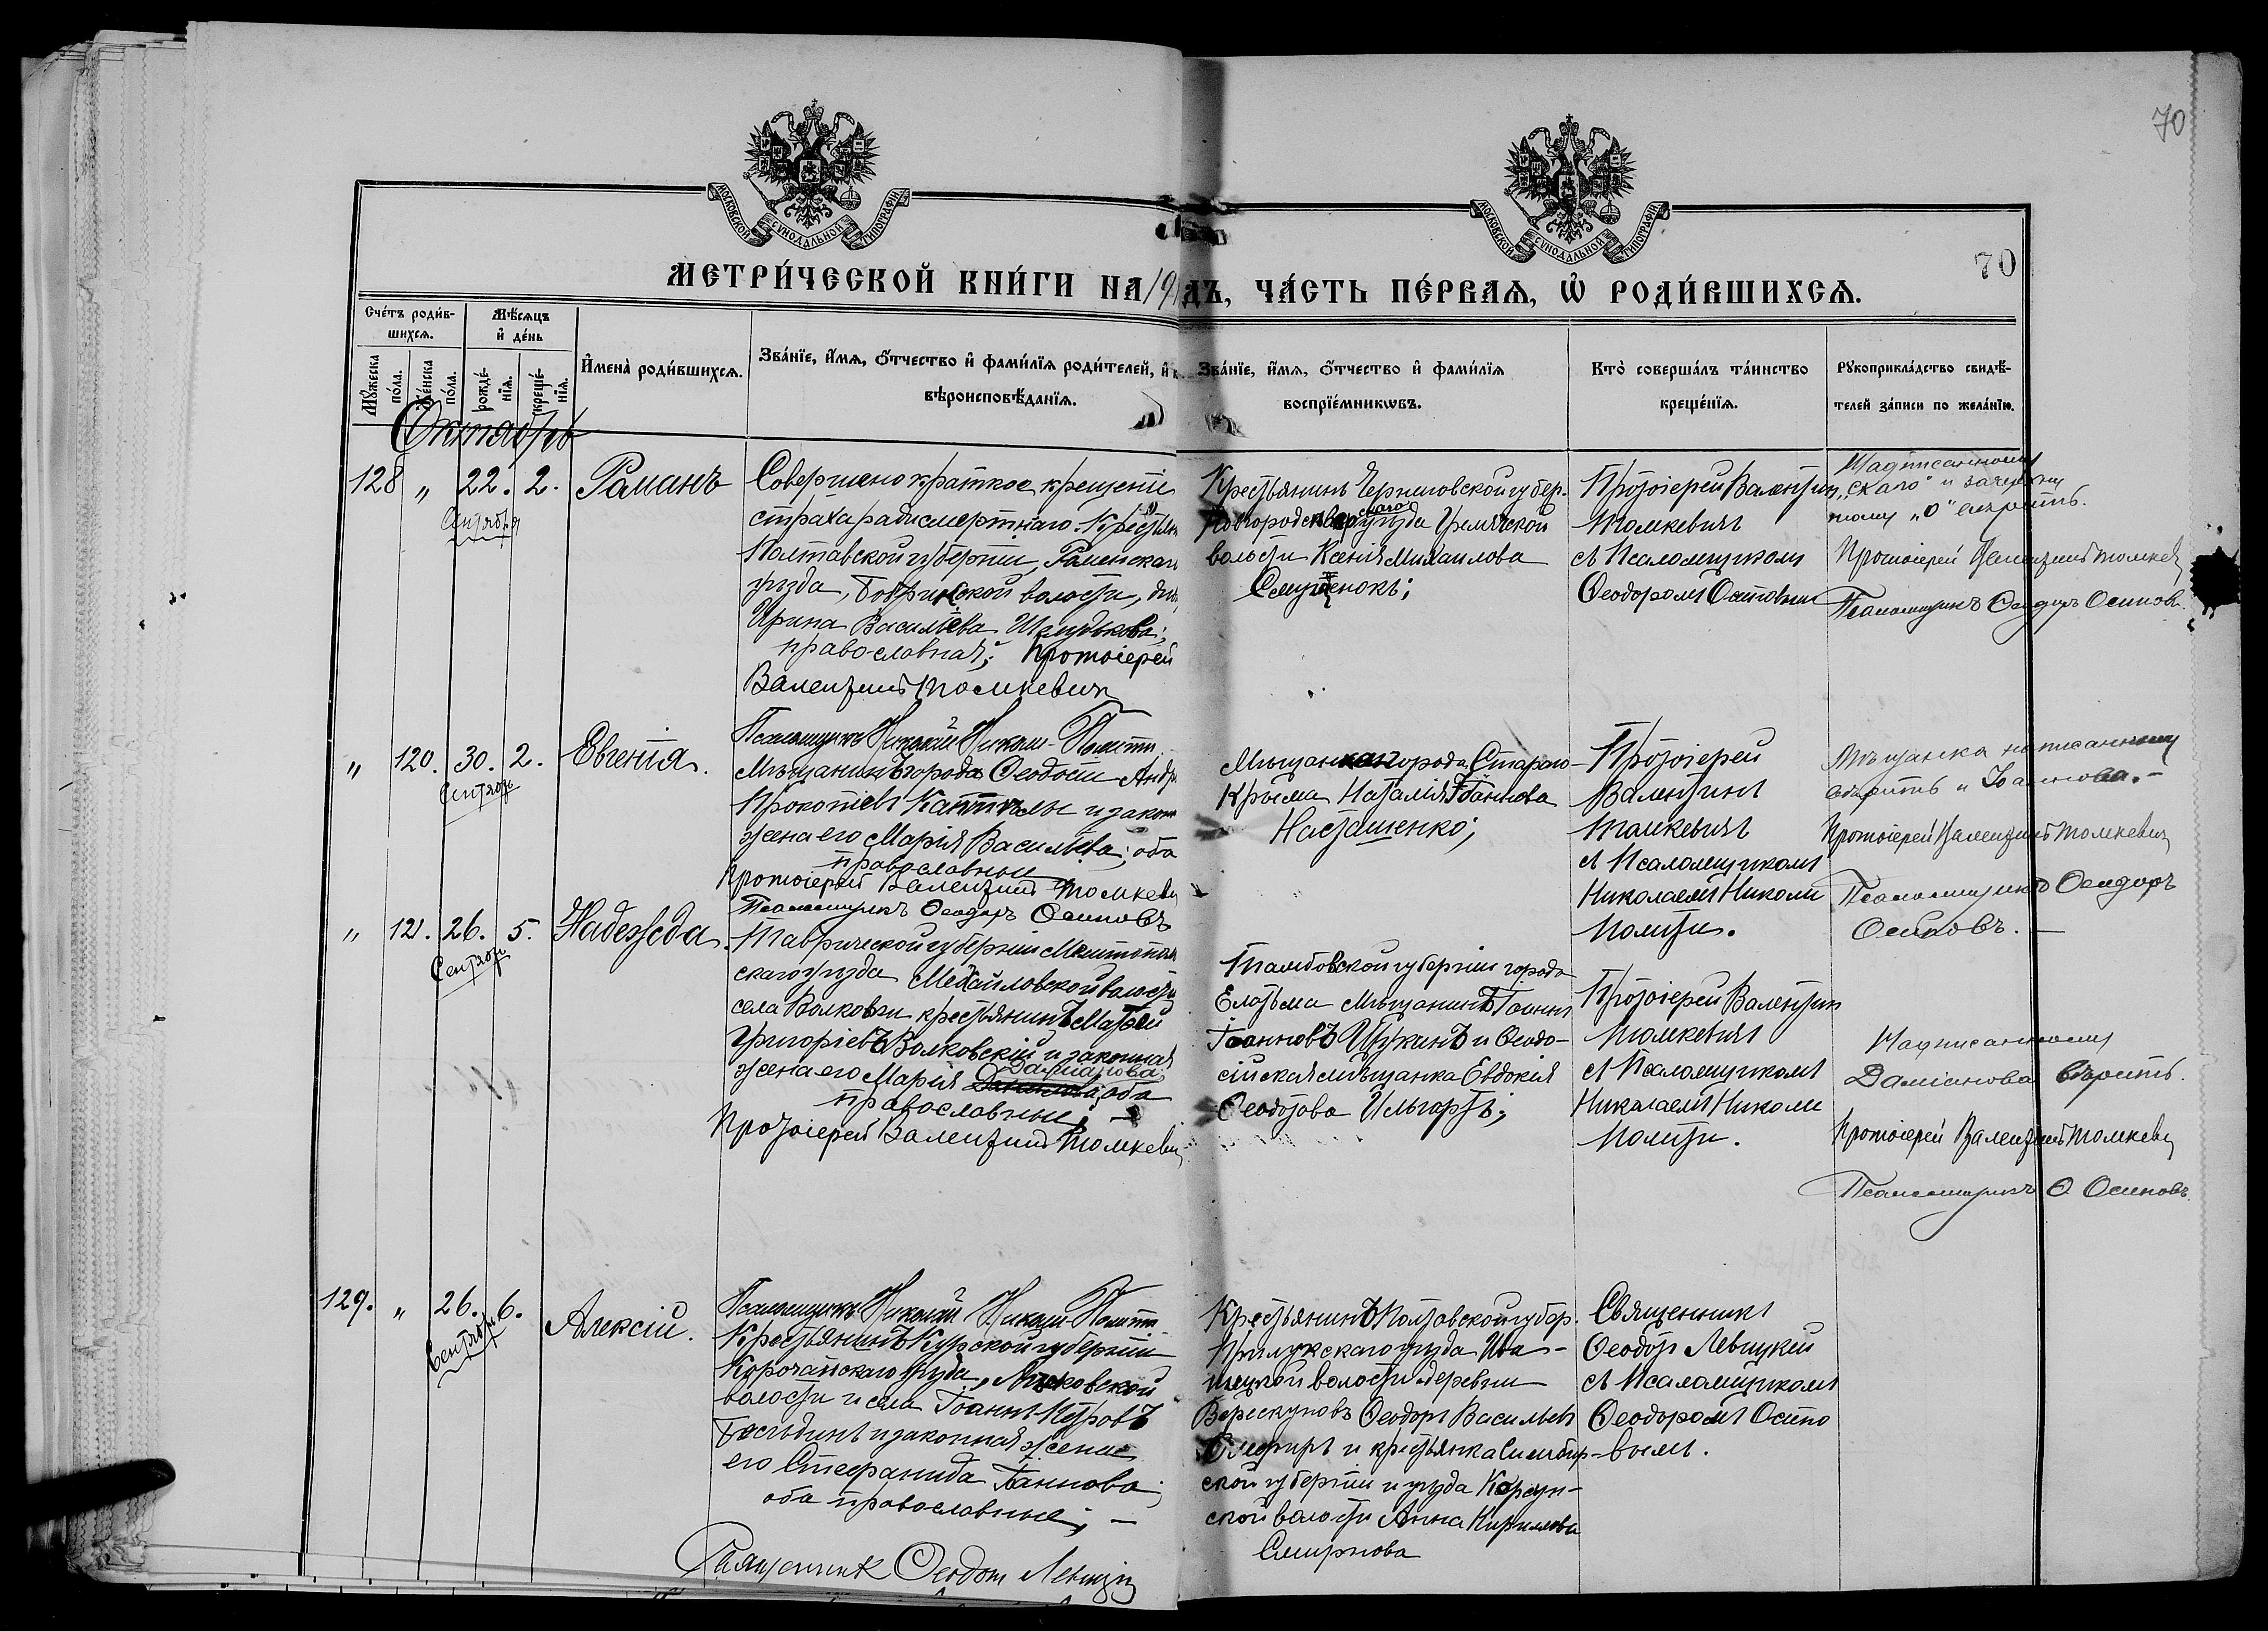 70
МОСКОВСКОЙ СУНОДАЛЬНОЙ ТИПОГРАФІИ
МОСКОВСКОЙ СУНОДАЛЬНОЙ ТИПОГРАФІИ
70
МЕТРИ́ЧЕСКОЙ КНИ́ГИ НА 19
ДЪ, ЧА́СТЬ ПЕ́РВАѦ, Ѡ҆ РОДИ́ВШИХСѦ.
Сче́тъ роди́в-
шихсѧ.
Мꙋ́жеска по́ла.
Же́нска по́ла.
Мѣ́сѧцъ
и҆ де́нь
рожде́-
нїѧ.
креще́-
нїѧ.
И҆мена̀ роди́вшихсѧ.
Зва́нїе, и҆́мѧ, ѻ҆́тчество и҆ фами́лїѧ роди́телей, и҆
вѣроисповѣ́данїѧ.
Зва́нїе, и҆́мѧ, ѻ҆́тчество и҆ фами́лїѧ
воспрїе́мникѡвъ.
Кто̀ соверша́лъ та́инство
креще́нїѧ.
Рꙋкоприкла́дство свидѣ́-
телей за́писи по жела́нїю.
Октябрь
128 „ 22. 2. Романъ
Сентября
Совершено краткое крещеніе
страха ради смертнаго. Крестьян
Полтавской губерніи, Роменскаго
уѣзда, волости, дѣв.
Ирина Васильева
православная; Протоіерей
Валентинъ Томкевич
Крестьянинъ Черниговской губер.
уѣзда Гремячской
волости Ксенія Михаилова
Семученокъ;
Протоіерей Валентин
Томкевичъ
съ Псаломщикомъ
Ѳеодоромъ Осиповым
Надписанному
„скаго“ и зачеркну
тому „о“ вѣрить.
Протоіерей Валентинъ Томкев
Псаломщикъ Ѳеодоръ Осипов.
„ 120. 30. 2. Евгенія.
Сентябрь
Псаломщикъ Николай Николи-Полити
Мѣщанинъ города Ѳеодосіи Андр
Прокопіевъ и закон
жена его Марія Васильева; оба
православные
Протоіерей Валентинъ Томкеви
Псаломщикъ Ѳеодоръ Осиповъ
Мѣщанка города Стараго-
Крыма Наталія Іоаннова
Насташенко;
Протоіерей
Валентинъ
Томкевичъ
съ Псаломщикомъ
Николаемъ Николи
Полити.
Мѣщанка написанному
вѣрить и Іоаннова. –
Протоіерей Валентинъ Томкевич
Псаломщикъ Ѳеодоръ
Осиповъ. —
„ 121. 26. 5. Надежда.
Сентябрь
Таврической губерніи Мелитополь
скаго уѣзда Михайловской волости
села крестьянинъ Матѳей
Григоріевъ Волковскій и законная
жена его Марія Даміанова оба
православные; —
Протоіерей Валентинъ Томкевич
Тамбовской губерніи города
Елатьма мѣщанинъ Іоаннъ
Іоанновъ и Ѳеодо-
сійская мѣщанка Евдокія
Ѳеодотова
Протоіерей Валентин
Томкевичъ
съ Псаломщикомъ
Николаемъ Николи
Полити.
Надписанному
Даміанова вѣрить.
Протоіерей Валентинъ Томкевич
Псаломщикъ Ѳ. Осиповъ.
129. „ 26. 6. Алексій.
Сентябрь
Псаломщикъ Николай Николи-Полити
Крестьянинъ Курской губерніи
Корочанскаго уѣзда,
волости и села Іоаннъ Петровъ
и законная жена
его Стефанида Іоаннова;
оба православные; —
Священник Ѳеодот Левицкій
Крестьянинъ Полтавской губер.
Прилукскаго уѣзда Ива-
ницкой волости деревни
Ѳеодоръ Васильевъ
и крестьянка Симбир-
ской губерніи и уѣзда Корсун-
ской волости Анна Кирилова
Смирнова
Священникъ
Ѳеодотъ Левицкій
съ Псаломщикомъ
Ѳеодоромъ Осипо
-вымъ.